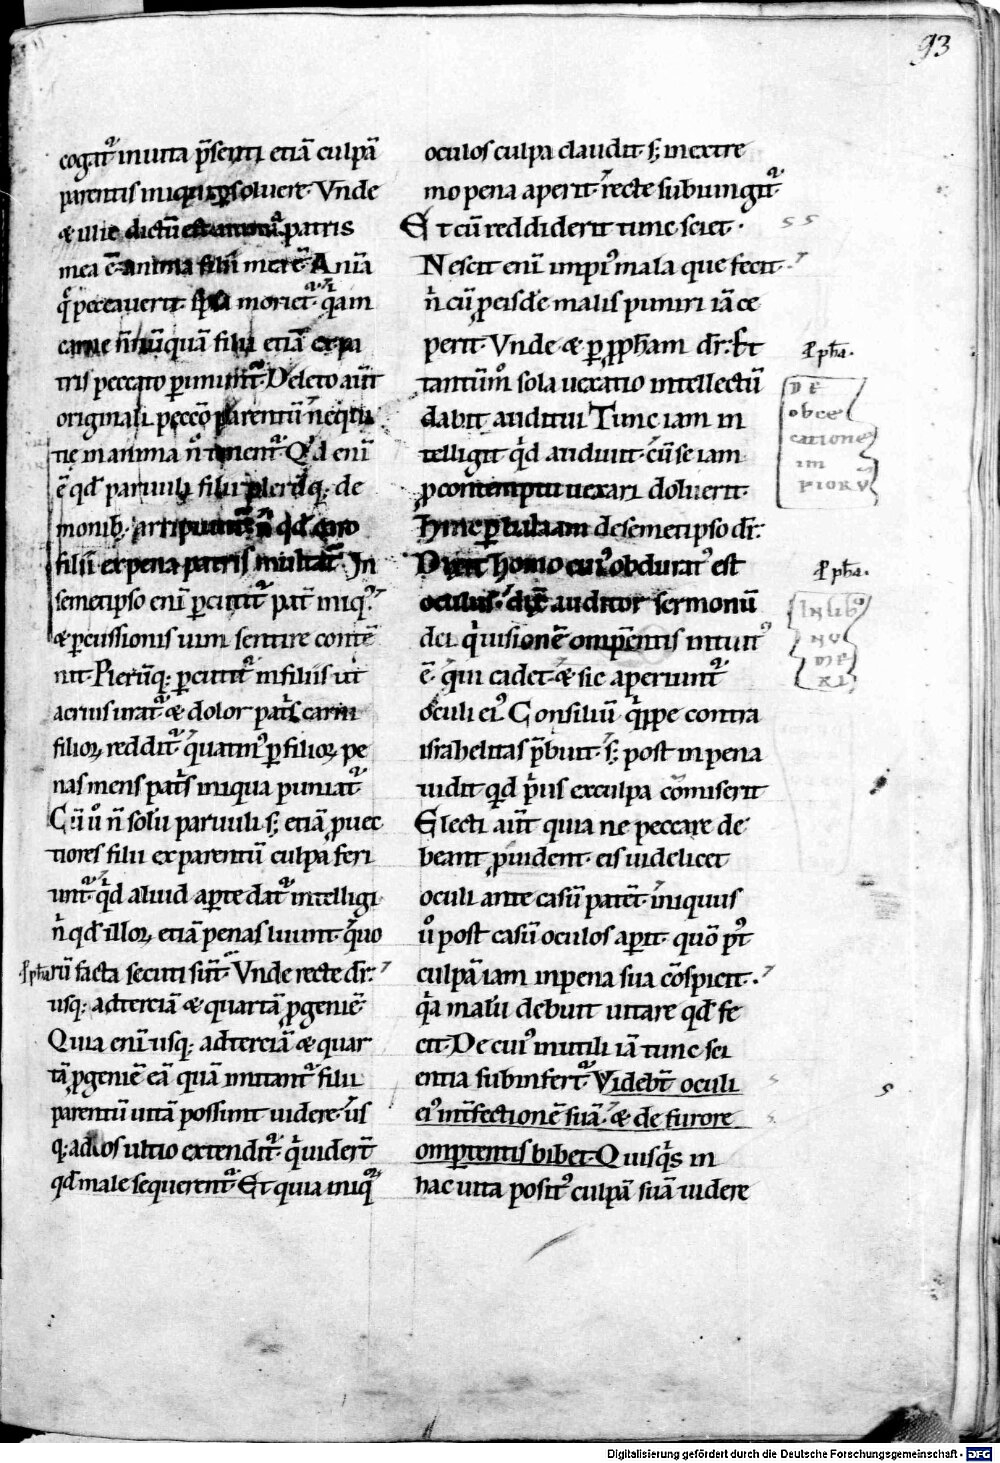 93
cogat᷑ inuita p̄senti etiā culpā
parentis iniqui psoluere. Vnde
& illic dictū est anima patris
mea ē. anima filii mea ē. Anima
q̊ peccauerit ipsa moriet᷑. q̄a in
carne n̄nūquā filii etiā ex pa
tris peccato perimunt᷑. Deleto aūt
originali peccō parentū nequi
tię in anima n̊ tenent᷑. Qd enī
ē qd paruuli filii plerūq; de
monib; arripiunt᷑. n̄ qd caro
filii ex pena patris multat᷑. In
semetipso enī p̲cutit᷑ pat̄ iniq᷒.
& p̲cussionis uim sentire contē
nit. Plerūq; p̲cutit᷑ in filiis ut
acrius urat᷑. & dolor pat̄s carni
filioꝝ reddit᷑. q̄tin᷒ p̲ filioꝝ pe
nas mens pat̄s iniqua puniat᷑
Cū ů n̄ solū paruuli s; etiā ꝓuec
tiores filii ex parentū culpa feri
unt᷑. qd aliud ap̲te dat᷑ intelligi
n̄ qd illoꝝ etiā penas luunt. quo
rū facta secuti sūt. Vnde recte dr̄.
usq; ad terciā & quartā ꝓgeniē.
Quia enī usq; ad terciā & quar
tā ꝓgeniē eā quā imitant᷑ filii
parentū uitā possunt uidere. us
q; ad eos ultio extendit᷑. qui uidert̄
qd male sequerent᷑. Et quia iniq᷒
oculos culpa claudit s; in extre
mo pena aperit. recte subiungit᷑
Et cū reddiderit tunc sciet.
Nescit enī impi᷒ mala que fecit.
n̄ cū ꝓ eisdē malis puniri iā ce
perit. Vnde & p̲ ꝓph̄am dr̄. Et
tantūm̊ sola uexatio intellectū
dabit auditui. Tunc iam in
telligit qd audiuit. cū se iam
ꝓ contemptu uexari doluerit.
Hinc p̲ balaam de semetipso dr̄.
Dixit homo cui᷒ obdurat᷒ est
oculus. dix̄ auditor sermonū
dei. qui uisionē omp̄entis intuit᷒
ē. qui cadet. & sic aperiunt᷑
oculi ei᷒. Consiliū q̄ppe contra
israhelitas p̄buit. s; post in pena
uidit qd p̄us ex culpa cōmiserit
Electi aūt quia ne peccare de
beant ꝓuident. eis uidelicet
oculi ante casū patēt. iniquus
ů post casū oculos ap̲it. quō p᷒t
culpā iam in pena sua cōspicit.
q̄a malū debuit uitare qd fe
cit. De cui᷒ inutili iā tunc sci
entia subinfert᷑. Videbt̄ oculi
ei᷒ int̄fectionē suā. & de furore
omp̄tentis bibet. Quisq̄s in
hac uita posit᷒ culpā suā uidere
ꝓph̄a.
DE
obce
catione
im
piorū
ꝓph̄a.
In lib᷒
Digitalisierung gefördert durch die Deutsche Forschungsgemeinschaft - DFG